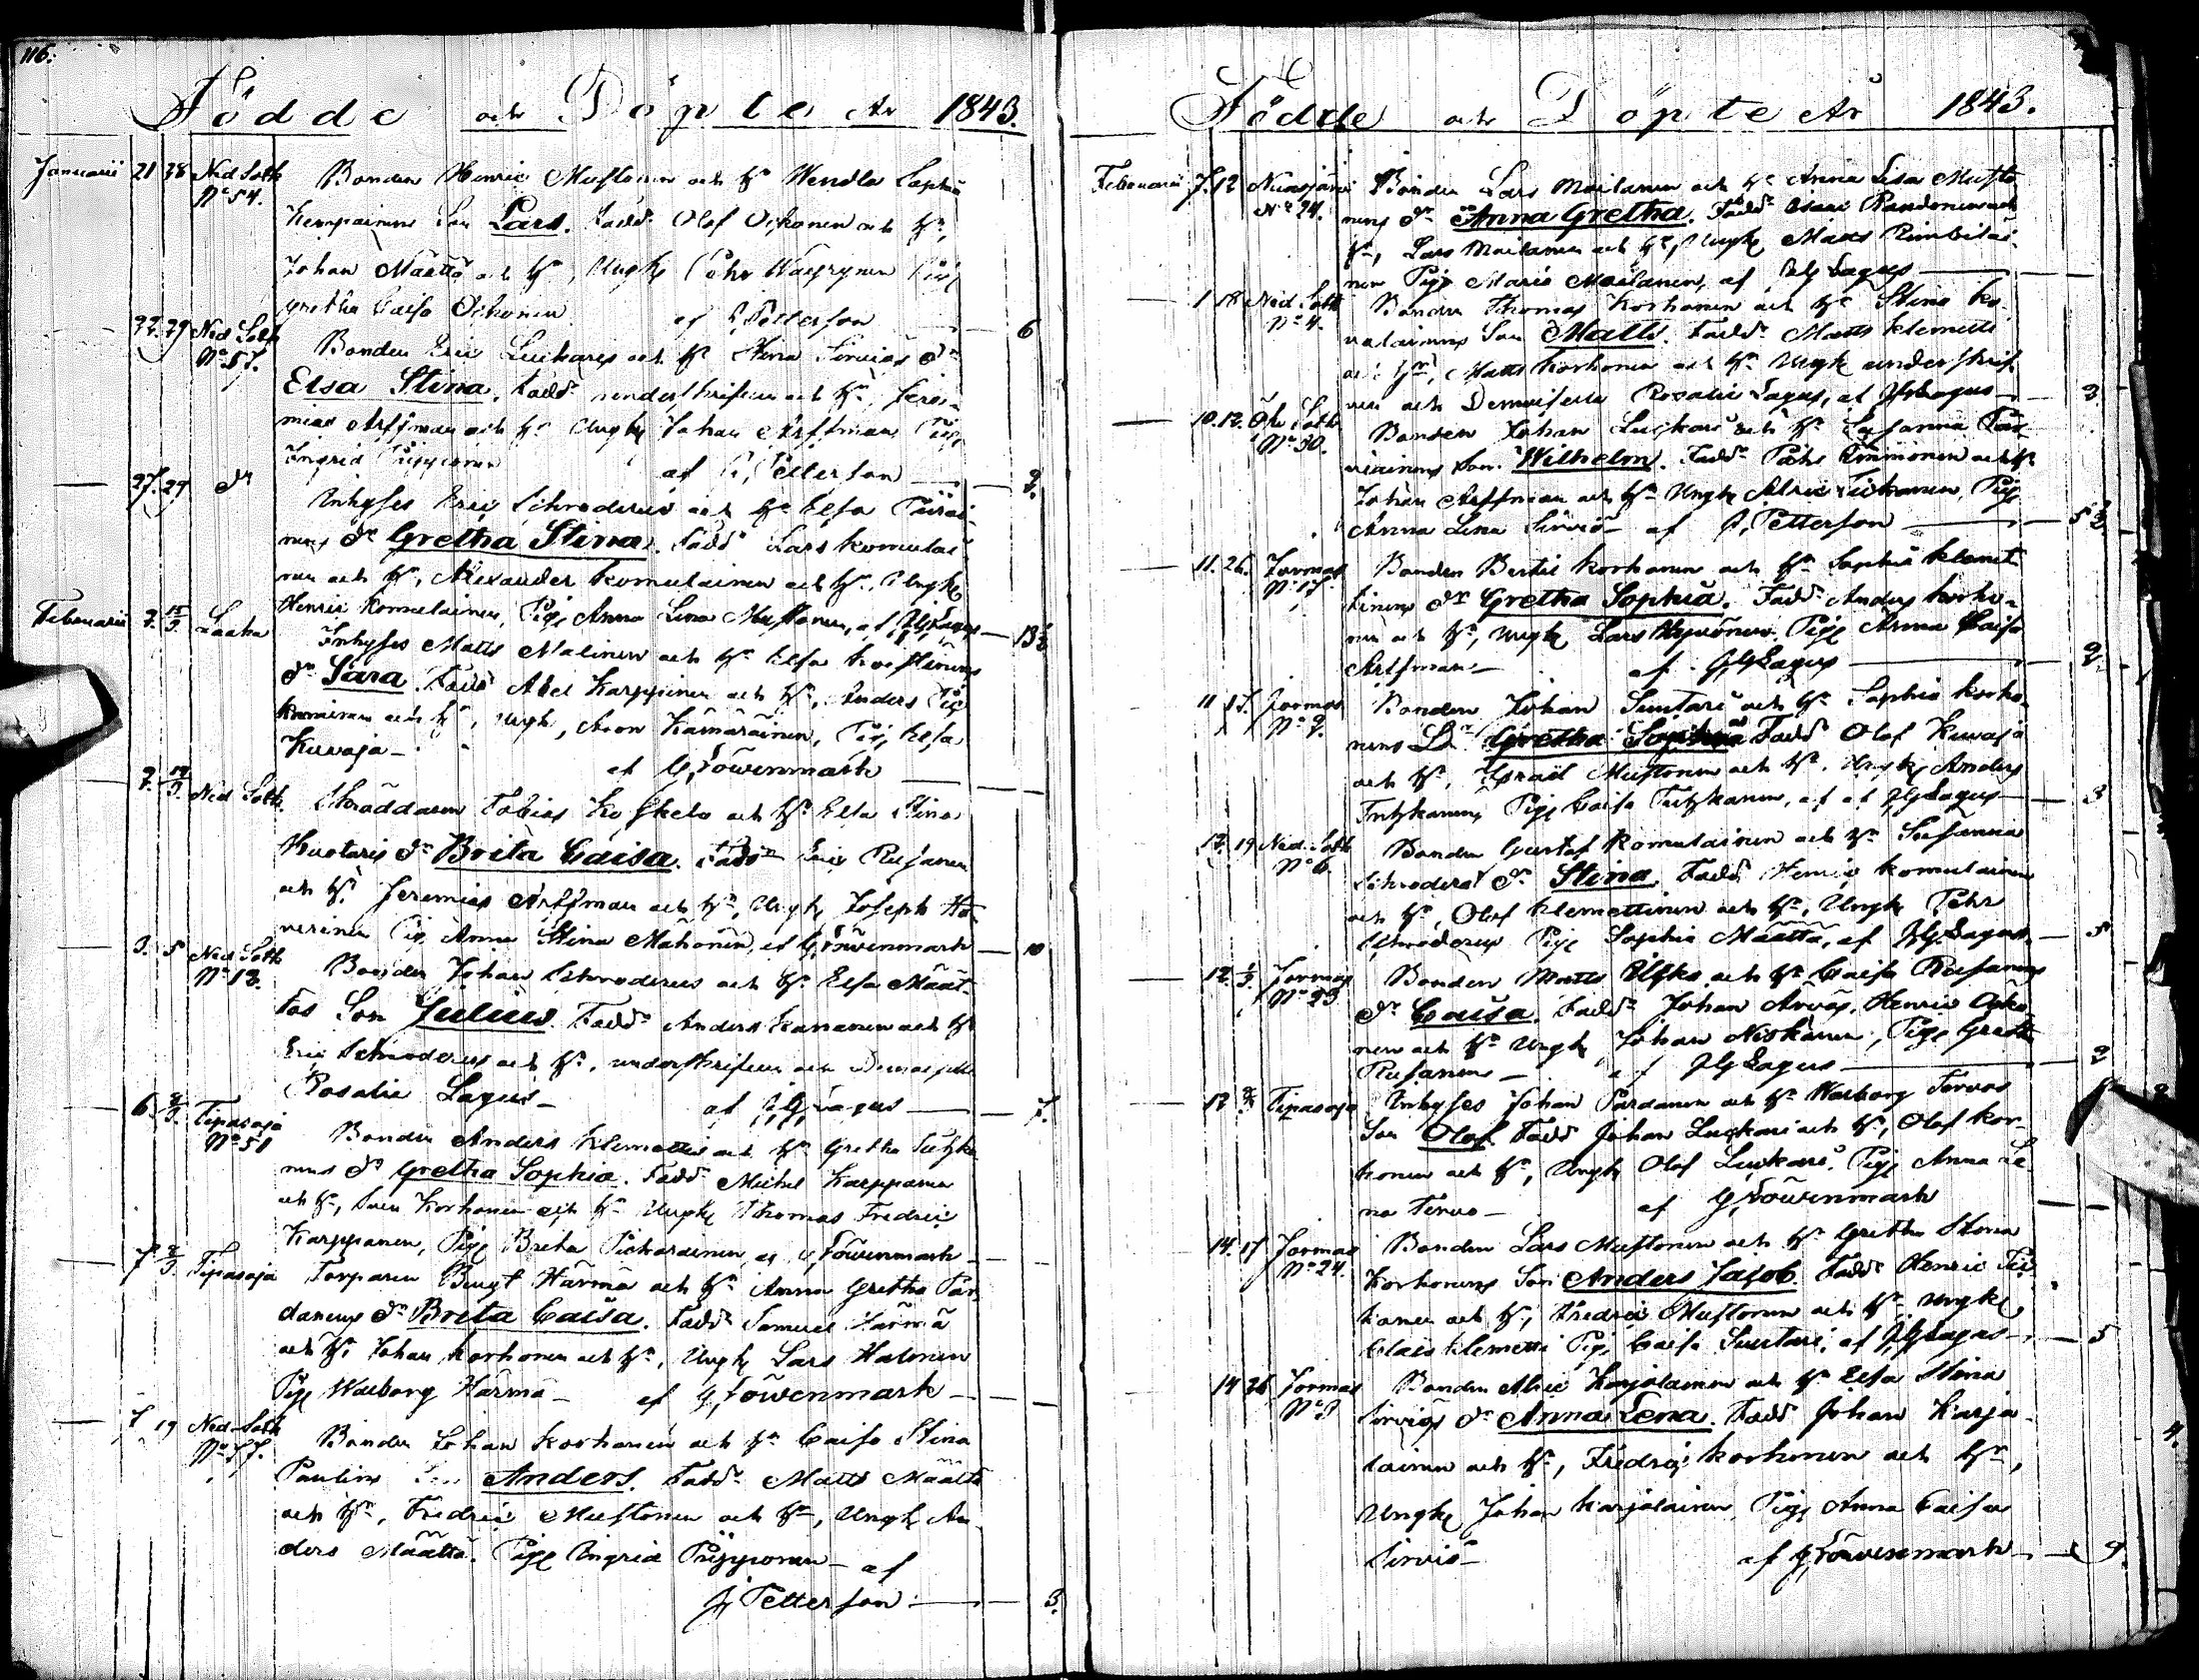 116.
Födde och Döpte År 1843.
Januarii 21 28 Ned Sotk Bonden Henric Mustonen och H. Wendla Sophia
N:o 54. Kempainens Son Lars. Fadd: Olof Ockonen och H:,
Johan Määttä och H:, Yngl: Pehr Wäyrynen Pig:
Gretha Caisa Ockonen af Petterson 6
22. 29 Ned Sotk Bonden Eric Luckaris och H: Stina Sirviös D:r
N:o 57. Elsa Stina. Fadd: underskrifven och H:, Jere-
mias Arffman och H: Yngl: Johan Arffman Pig:
Ingrid Piipponen af Petterson 2.
27. 29 D:o Inhyses Eric Schroderus och H: Elsa Piirai-
nens D:r Gretha Stina. Fadd: Lars Komulai-
nen och H:, Alexander Komulainen och H:, Yngl:
Henric Komulainen, Pig: Anna Lena Mustonen, af Lagus 13½
Februarii 2. 15/3 Laaka Inhyses Matts Malinen och H: Elsa
D:r Sara. Fadd: Abel Karppinen och H:, Anders
och H:, Yngl: Aron Kämäräinen, Pig: Elsa
Kuvaja af G Löwenmark
2. 12/3. Ned Sotk Skräddaren Tobias Koskelo och H: Elsa Stina
D:r Brita Caisa. Fadd: Eric Rusanen
och H: Jeremias Arffman och H:, Yngl: Joseph Ho-
verinen Pig: Anna Stina Mähönen, af G Löwenmark 10
3. 5 Ned Sotk Bonden Johan Schroderus och H: Elsa Määt-
N:o 13. täs Son Julius. Fadd: Anders Kananen och H:
Eric Schroderus och H:, underskrifven och Demoiselle
Rosalie Lagus af J G Lagus 7.
6. 8/3. Tipasoja Bonden Anders Klemetti och H: Gretha
N:o 51 nens D:r Gretha Sophia. Fadd: Michel Karppanen
och H:, Sven Korhonen och H: Yngl: Thomas Fredric
Karppanen, Pig: Brita Pickarainen af G Löwenmark
7 8/3. Tipasoja Torparen Bengt Härmä och H: Anna Gretha Par-
danens D:r Brita Caisa. Fadd: Samuel Härmä
och H: Johan Korhonen och H:, Yngl: Lars Halonen
Pig: Walborg Härmä af G Löwenmark
7 19 Ned Sotk Bonden Johan Korhonen och H: Caisa Stina
N:o 77. Paulins Son Anders. Fadd: Matts Määttä
och H:, Fredric Mustonen och H:, Yngl: An-
ders Määttä. Pig: Ingrid Piipponen af
Petterson 3.
Födde och Döpte År 1843.
Februarii 7. 12 Nuasjärvi Bonden Lars Moilanen och H: Anna Lisa Musto-
N:o 24. nens D:r Anna Gretha. Fadd: och
H:, Lars Moilanen och H:, Yngl: Matts Rimbiläi-
nen Pig: Maria Moilanen, af J G Lagus
1 18 Ned Sotk Bonden Thomas Korhonen och H: Stina Ko-
N:o 4. valainens Son Matts. Fadd: Matts Klemetti
och H:, Matts Korhonen och H: Yngl: underskrif-
ven och Demoiselle Rosalie Lagus, af J G Lagus 2
10. 12. Öfv Sotk Bonden Johan Luckari och H: Susanna Par-
N:o 30. viainens Son Wilhelm. Fadd: Pehr och H:
Johan Arffman och H: Yngl: Alric Tickanen, Pig:
Anna Lena Sirviö af Petterson 5½
11. 26. Jormas Bonden Bertil Korhonen och H: Sophia Klemet-
N:o 17. tinens D:r Gretha Sophia. Fadd: Anders Korho-
nen och H:, Yngl: Lars Hyvönen Pig: Anna Caisa
Arffman af J G Lagus 2
11 15. Jormas Bonden Johan Suutari och H: Sophia Korho-
N:o 9. nens Gretha Sophia Fadd: Olof Kuvaja
och H:, Israel Mustonen och H:, Yngl: Anders
Pig: Caisa af af J G Lagus 3
12. 19 Ned Sotk Bonden Gustaf Komulainen och H: Susanna
N:o 6. Schroderus D:r Stina. Fadd: Henric Komulainen
och H:, Olof Klemettinen och H:, Yngl: Pehr
Schroderus Pig: Sophia Määttä, af J G Lagus 5
12. 1/3. Jormas Bonden Matts och H: Caisa Rusanens
N:o 23 D:r Caisa. Fadd: Johan Henric
nen och H: Yngl: Johan Niskanen, Pig: Gretha
Rusanen af J G Lagus 2
12 Tipasoja Inhyses Johan Pardanen och H: Walborg Tervos
Son Olof. Fadd: Johan Luckari och H:, Olof Kor-
honen och H:, Yngl: Olof Luckari, Pig: Anna Le-
na Tervo af G Löwenmark
14. 17 Jormas Bonden Lars Mustonen och H: Gretha Stina
N:o 24. Korhonens Son Anders Jacob. Fadd: Henric Tic-
kanen och H:, Fredric Mustonen och H: Yngl:
Claes Klemetti Pig: Caisa Suutari, af J G Lagus 5
14 26 Jormas Bonden Alric Karjalainen och H: Elsa Stina
Sirviös D:r Anna Lena. Fadd: Johan Karja-
lainen och H:, Fredric Korhonen och H:,
Yngl: Johan Karjalainen, Pig: Anna Caisa
Sirviö af G Löwenmark